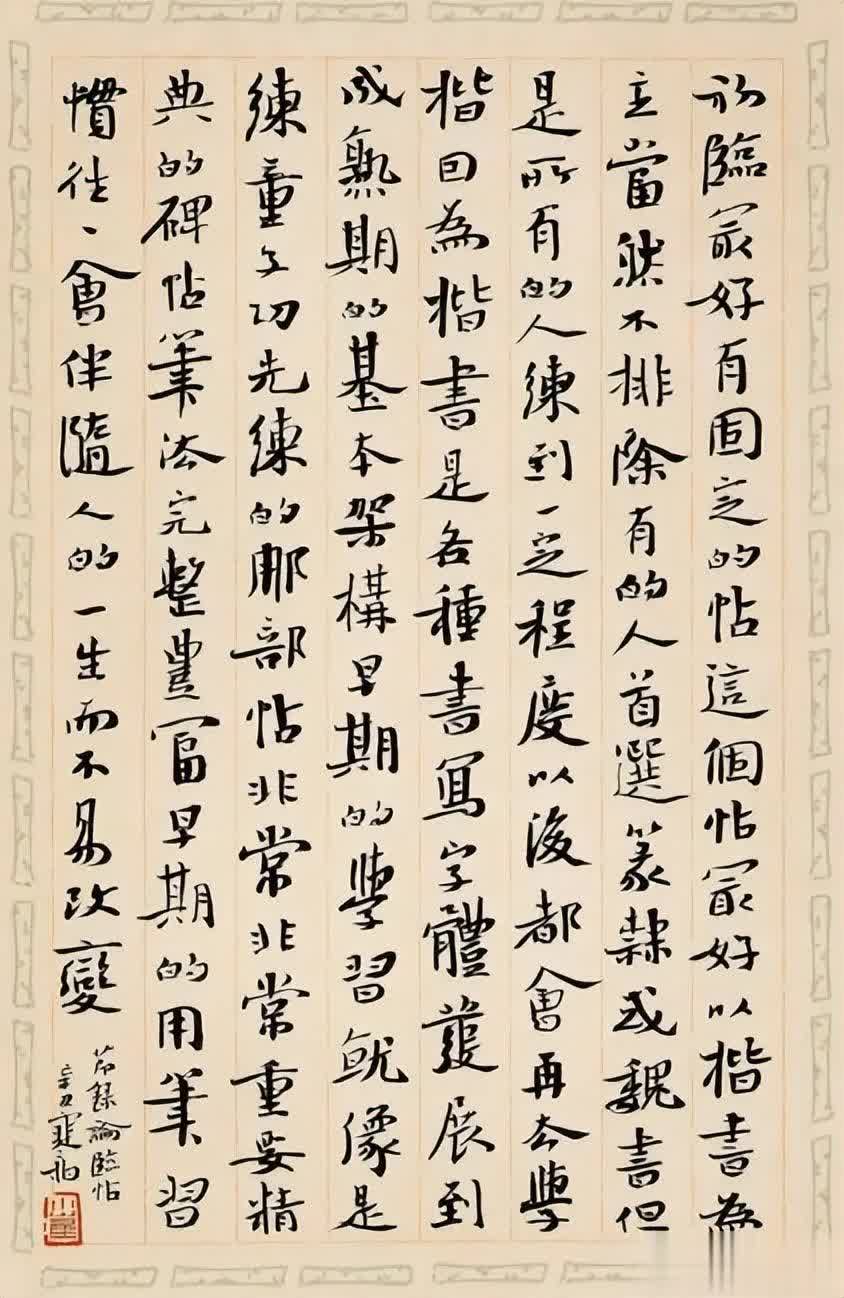 初臨最好有固定的帖這個帖最好以楷書為
主當然不排除有的人首選篆隸或魏書但
是所有的人練到一定程度以後都會再去學
楷因為楷書是各種書寫字體發展到
成熟期的基本架構早期的學習就像是
練童子功先練的那部帖非常非常重要精
典的碑帖筆法完整豐富早期的用筆習
慣往〻會伴隨人的一生而不易改變
節錄論臨帖
辛丑